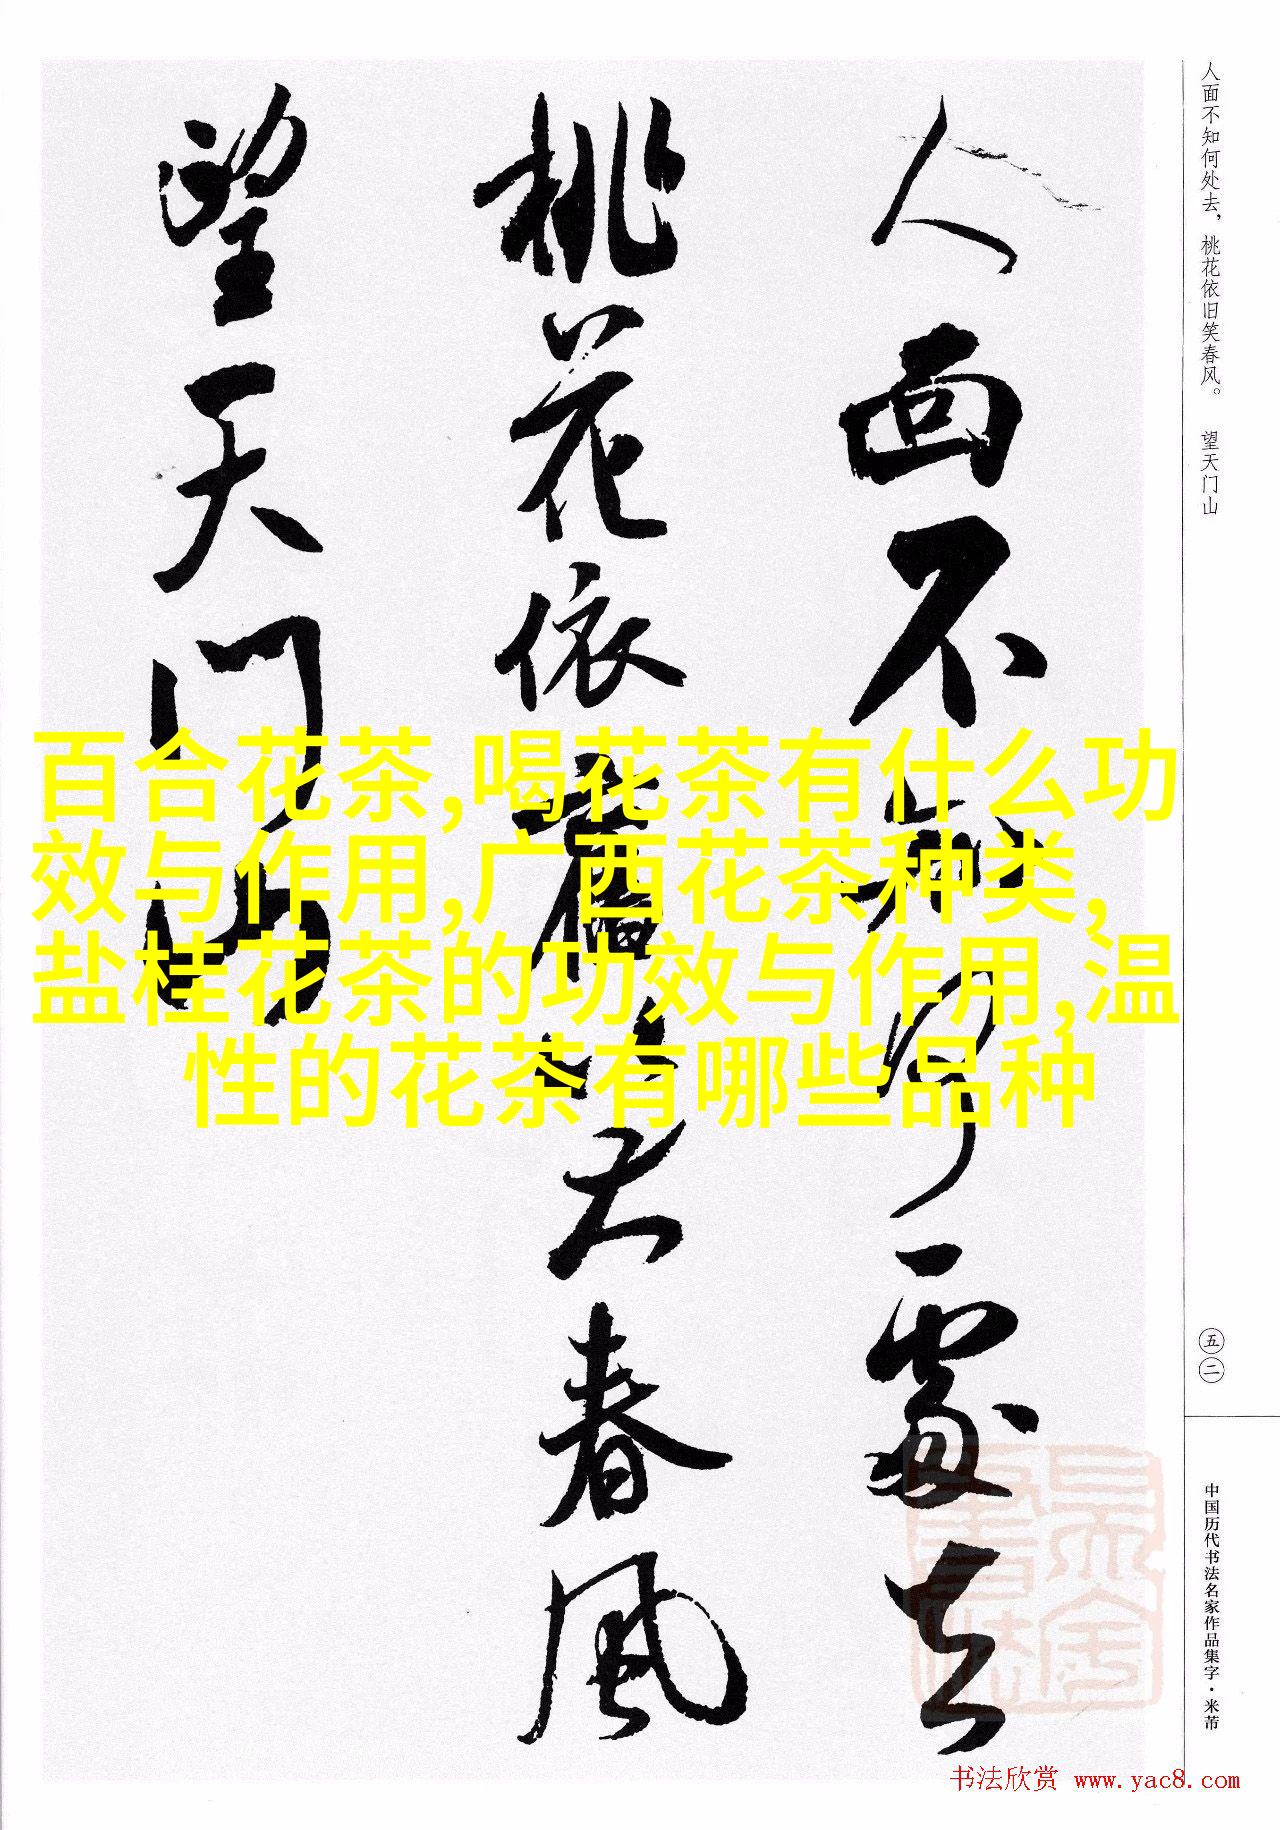 人面不知何处去，桃花依旧笑春风。 望天门山
人面不知何處去
桃花依舊笑春風
望天门山
百合花茶,喝花茶有什么功
效与作用,广西花茶种类,
盐桂花茶的功效与作用,温
性的花茶有哪些品种
五二
中国历代书法名家作品集字·米芾
书法欣赏 www.yac8.com